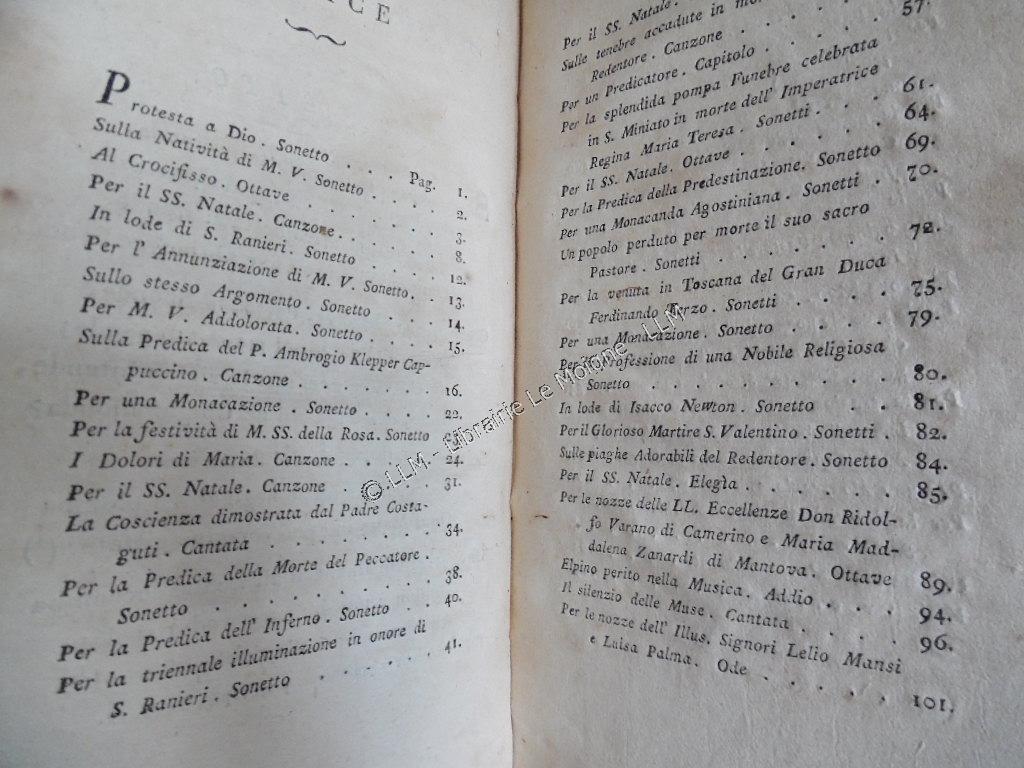 ICE
Protesta a Dio. Sonetto . . . Pag. 1.
Sulla Natività di M. V. Sonetto . . . . 2.
Al Crocifisso. Ottave . . . . . . . 3.
Per il SS. Natale. Canzone. . . . . . 8.
In lode di S. Ranieri. Sonetto . . . . 12.
Per l' Annunziazione di M. V. Sonetto. . 13.
Sullo stesso Argomento. Sonetto . . . . 14.
Per M. V. Addolorata. Sonetto . . . . 15.
Sulla Predica del P. Ambrogio Klepper Cap-
puccino. Canzone . . . . . . . 16.
Per una Monacazione. Sonetto . . . . 22.
Per la festività di M. SS. della Rosa. Sonetto
I Dolori di Maria. Canzone . . . . 24.
Per il SS. Natale. Canzone . . . . 31.
La Coscienza dimostrata dal Padre Costa-
guti. Cantata . . . . . . . . 34.
Per la Predica della Morte del Peccatore.
Sonetto . . . . . . . . . 38.
Per la Predica dell' Inferno. Sonetto . . 40.
Per la triennale illuminazione in onore di
S. Ranieri. Sonetto . . . . . . 41.
Per il SS. Natale.
Sulle tenebre accadute in
Redentore. Canzone . . . . 57.
Per un Predicatore. Capitolo . . . .
Per la splendida pompa Funebre celebrata
in S. Miniato in morte dell' Imperatrice
Regina Maria Teresa. Sonetti . . . 61.
Per il SS. Natale. Ottave . . . . . 64.
Per la Predica della Predestinazione. Sonetto 69.
Per una Monacanda Agostiniana. Sonetti . 70.
Un popolo perduto per morte il suo sacro
Pastore. Sonetti . . . . . . . 72.
Per la venuta in Toscana del Gran Duca
Ferdinando Terzo. Sonetti . . . . 75.
Per una Monacazione. Sonetto . . . . 79.
Per la Professione di una Nobile Religiosa
Sonetto . . . . . . . . . 80.
In lode di Isacco Newton. Sonetto . . 81.
Per il Glorioso Martire S. Valentino. Sonetti . 82.
Sulle piaghe Adorabili del Redentore. Sonetto 84.
Per il SS. Natale. Elegìa . . . . . . 85.
Per le nozze delle LL. Eccellenze Don Ridol-
fo Varano di Camerino e Maria Mad-
dalena Zanardi di Mantova. Ottave 89.
Elpino perito nella Musica. Addio . . . 94.
Il silenzio delle Muse. Cantata . . . . 96.
Per le nozze dell' Illus. Signori Lelio Mansi
e Luisa Palma. Ode . . . . . 101.
© LLM - Librairie Le Moigne - LLM